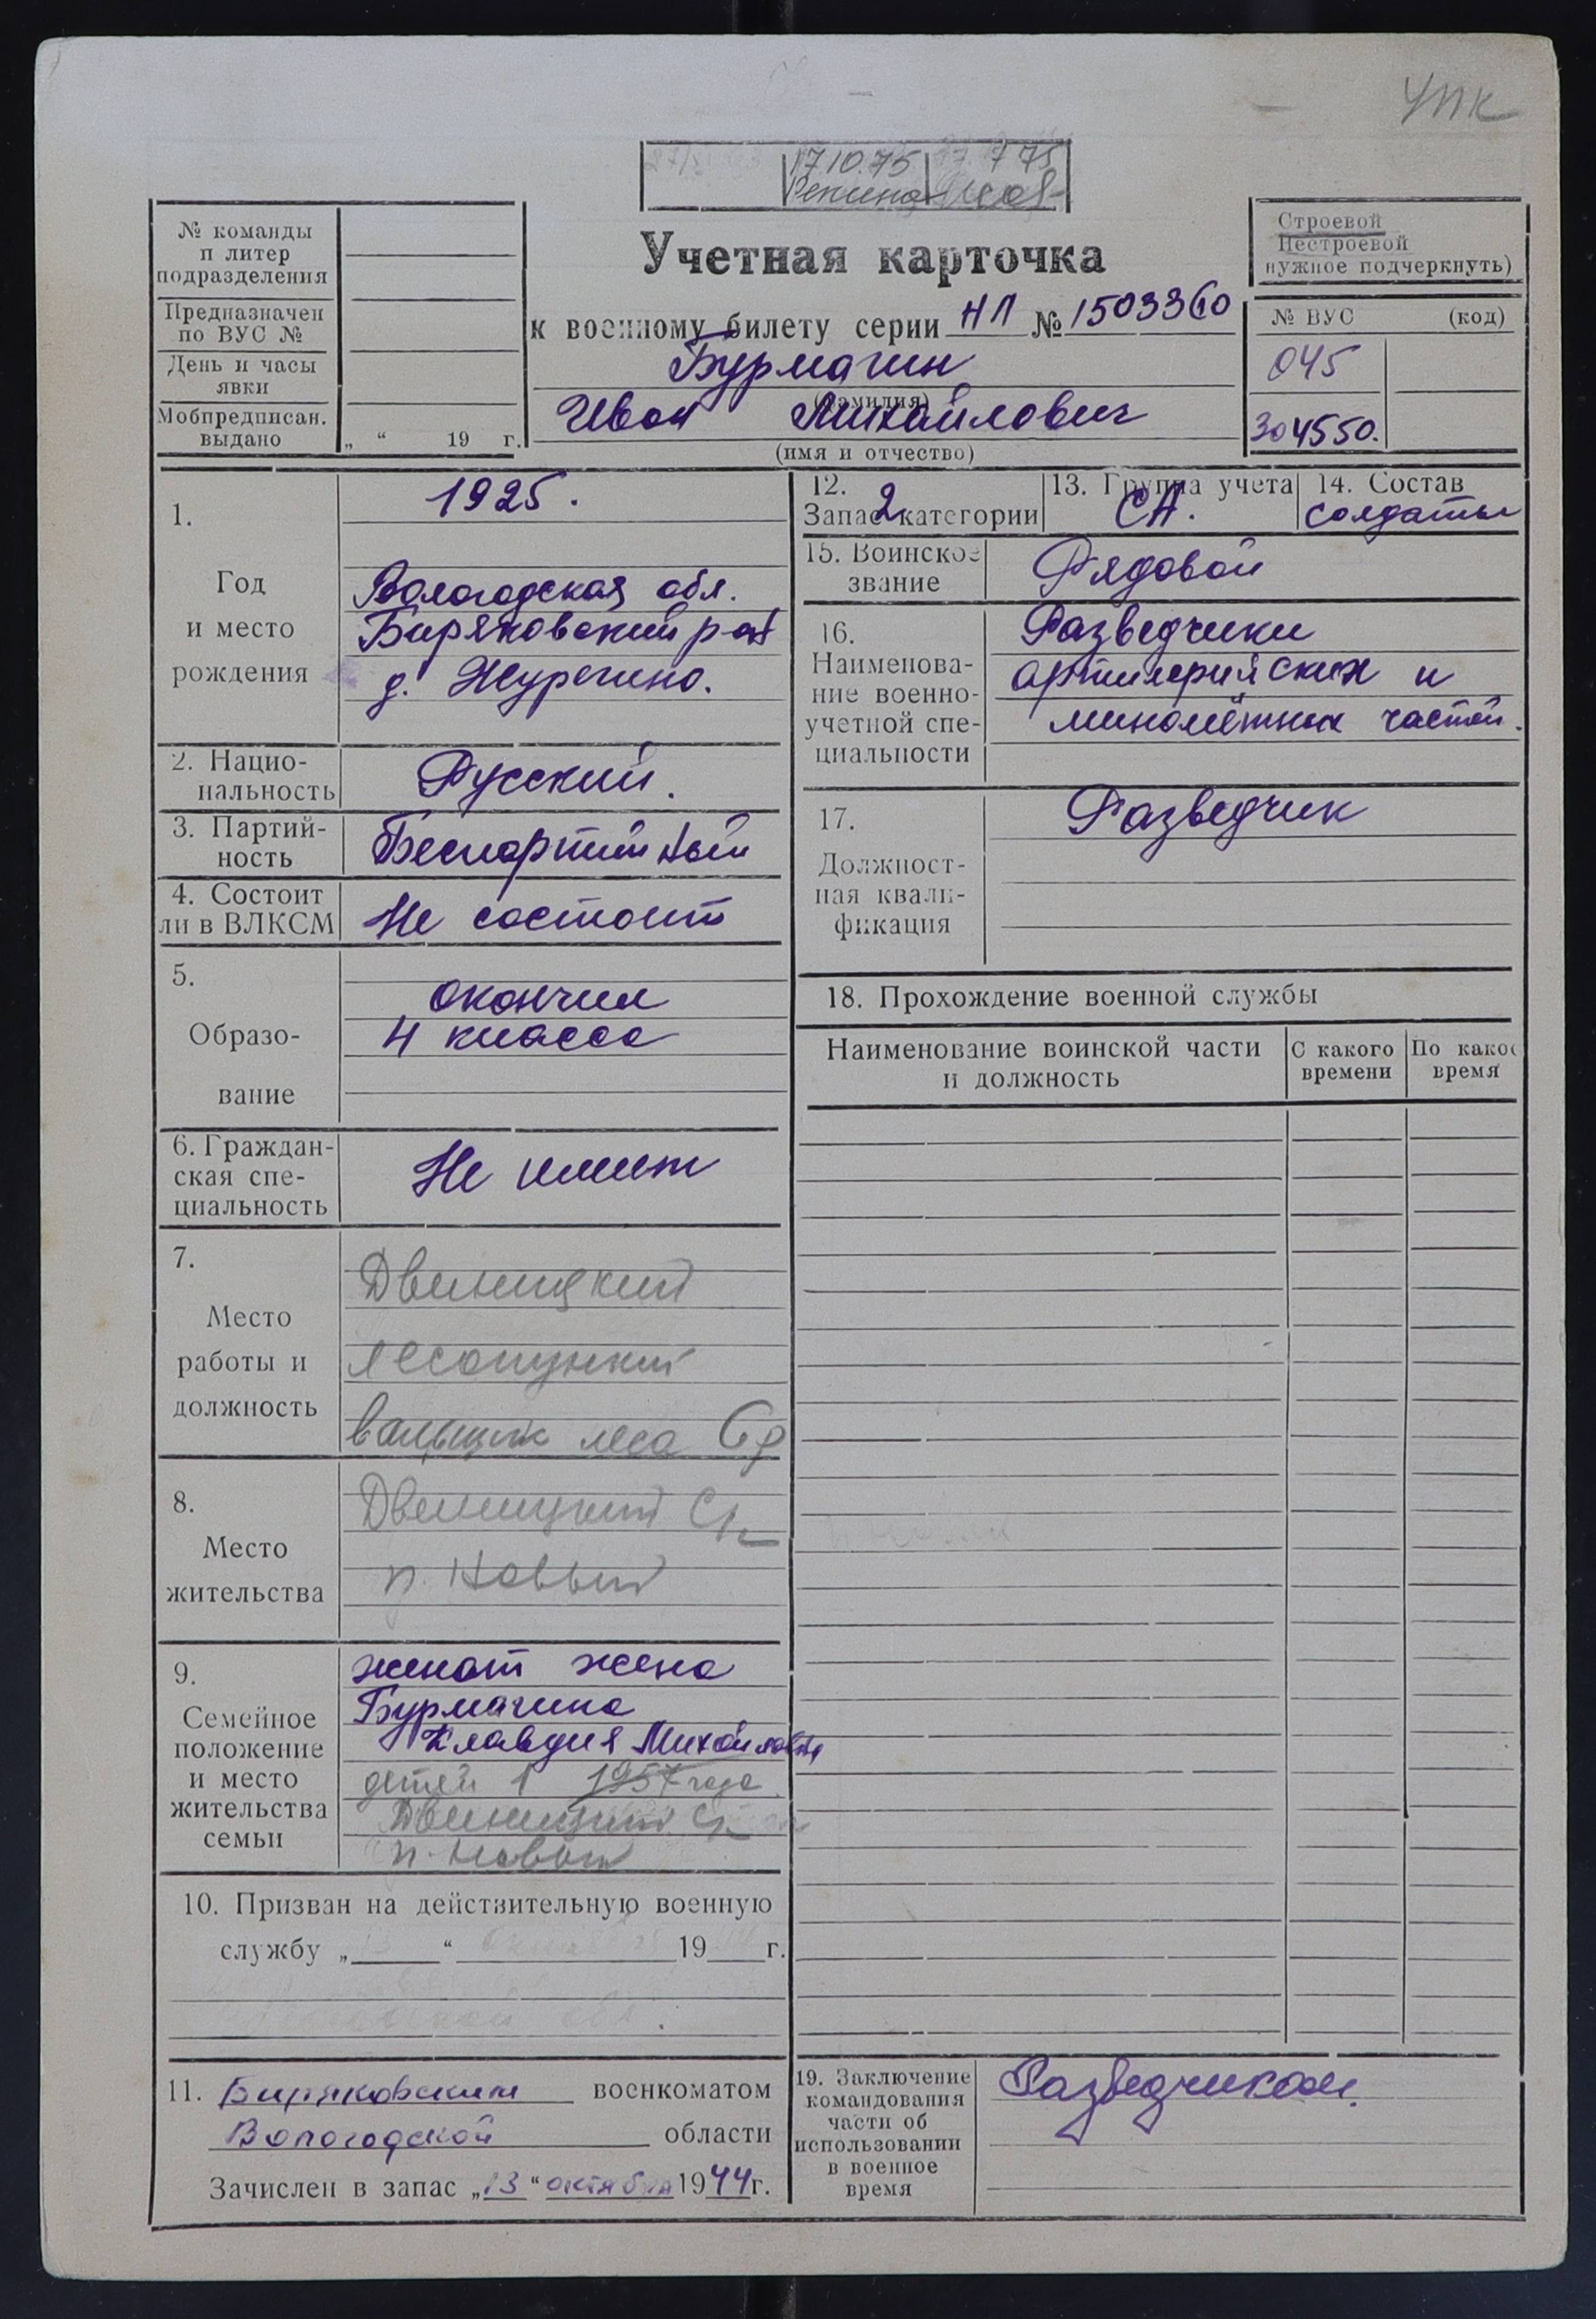 УПК
17.10.75
7 75
№ команды
п литер
подразделения
Предназначен
по ВУС №
День и часы
явки
Мобпредписан.
выдано
„ “ 19 г.
Учетная карточка
к военному билету серии НЛ № 1503360
Бурмагин
(фамилия)
Иван Михайлович
(имя и отчество)
Строевой
Нестроевой
нужное подчеркнуть)
№ ВУС (код)
045
304550.
1.
Год
и место
рождения
1925.
Вологодская обл.
Биряковский р-он
д. Журегино.
2. Нацио-
нальность
Русский.
3. Партий-
ность
Беспартийный
4. Состоит
ли в ВЛКСМ
Не состоит
5.
Образо-
вание
окончил
4 класса
6. Граждан-
ская спе-
циальность
Не имеет
7.
Место
работы и
должность
Двиницкий
лесопункт
вальщик леса
8.
Место
жительства
Двиницкий
п. Новый
9.
Семейное
положение
и место
жительства
семьи
женат жена
Бурмагина
Клавдия Михайловна
детей 1 1957 года
Двиницкий
п. Новый
10. Призван на действительную военную
службу „ “ 19 г.
обл.
11. Биряковским военкоматом
Вологодской области
Зачислен в запас „13“ октября 1944 г.
12.
Запас 2 категории
13. Группа учета
СА.
14. Состав
солдаты
15. Воинское
звание
Рядовой
16.
Наименова-
ние военно-
учетной спе-
циальности
Разведчики
артилерийских и
миномётных частей.
17.
Должност-
ная квали-
фикация
Разведчик
18. Прохождение военной службы
Наименование воинской части
и должность
С какого
времени
По какое
время
19. Заключение
командования
части об
использовании
в военное
время
Разведчиком.